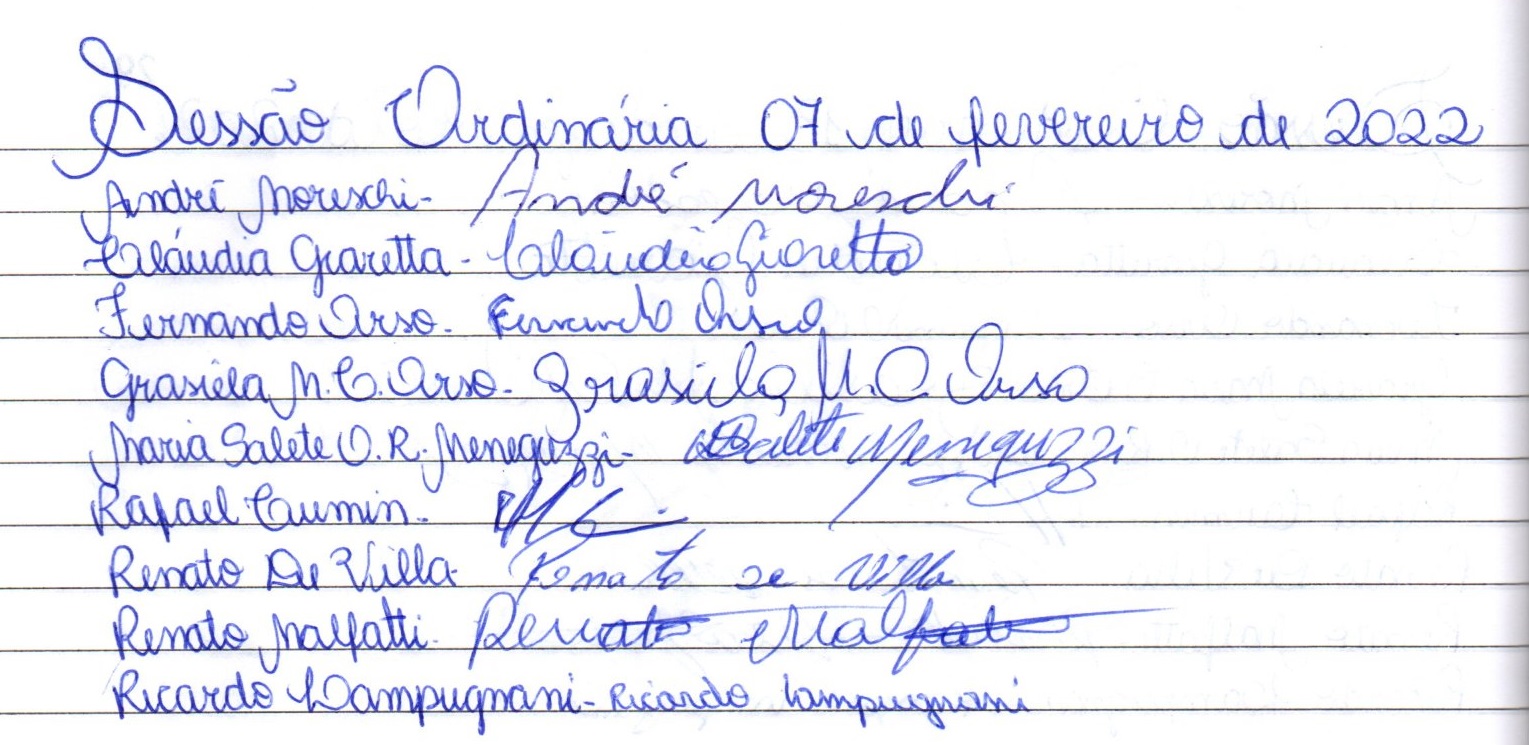 Sessão Ordinária 07 de fevereiro de 2022
André Moreschi - André Moreschi
Claúdia Giaretta - Claudia Giaretta
Fernando Orso - Fernando Orso
Grasiela M. C. Orso - Grasiela M. C. Orso
Maria Salete O. R. Meneguzzi - Salete Meneguzzi
Rafael Cumin -
Renato De Villa - Renato de Villa
Renato Malfatti - Renato Malfatti
Ricardo Lampugnani - Ricardo Lampugnani